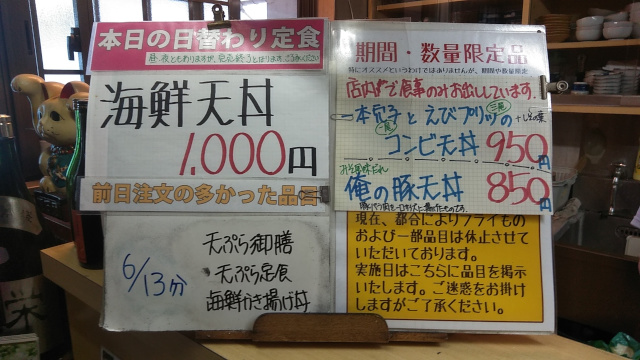 本日の日替わり定食
昼・夜ともありますが、売切れ終了となります。ご了承ください
海鮮天丼
1,000円
前日注文の多かった品目
6/13分
天ぷら御膳
天ぷら定食
海鮮かき揚げ丼
期間・数量限定品
特にオススメというわけではありませんが、期間や数量限定
店内で食事のみお出ししています。
本穴子とえびプリッツの
コンビ天丼 950円
俺の豚天丼 850円
現在、都合によりフライもの
および一部品目は休止させて
いただいております。
実施日はこちらに品目を掲示
いたします。ご迷惑をお掛け
しますがご了承ください。